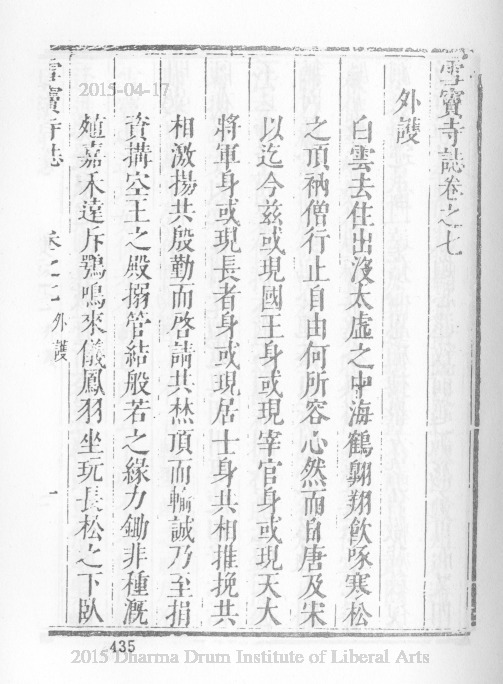 雪竇寺誌卷之七
外護
白雲去住出沒太虛之中海鶴翺翔飲啄寒松
之頂衲僧行止自由何所容心然而自唐及宋
以迄今茲或現國王身或現宰官身或現天大
將軍身或現長者身或現居士身共相推挽共
相激揚共殷勤而啓請共焚頂而輸誠乃至捐
資搆空王之殿搦管結般若之緣力鋤非種溉
殖嘉禾遠斥鶚鳴來儀鳳羽坐玩長松之下臥
雪竇寺誌 卷之七 外護 一
2015-04-17
435
2015 Dharma Drum Institute of Liberal Arts